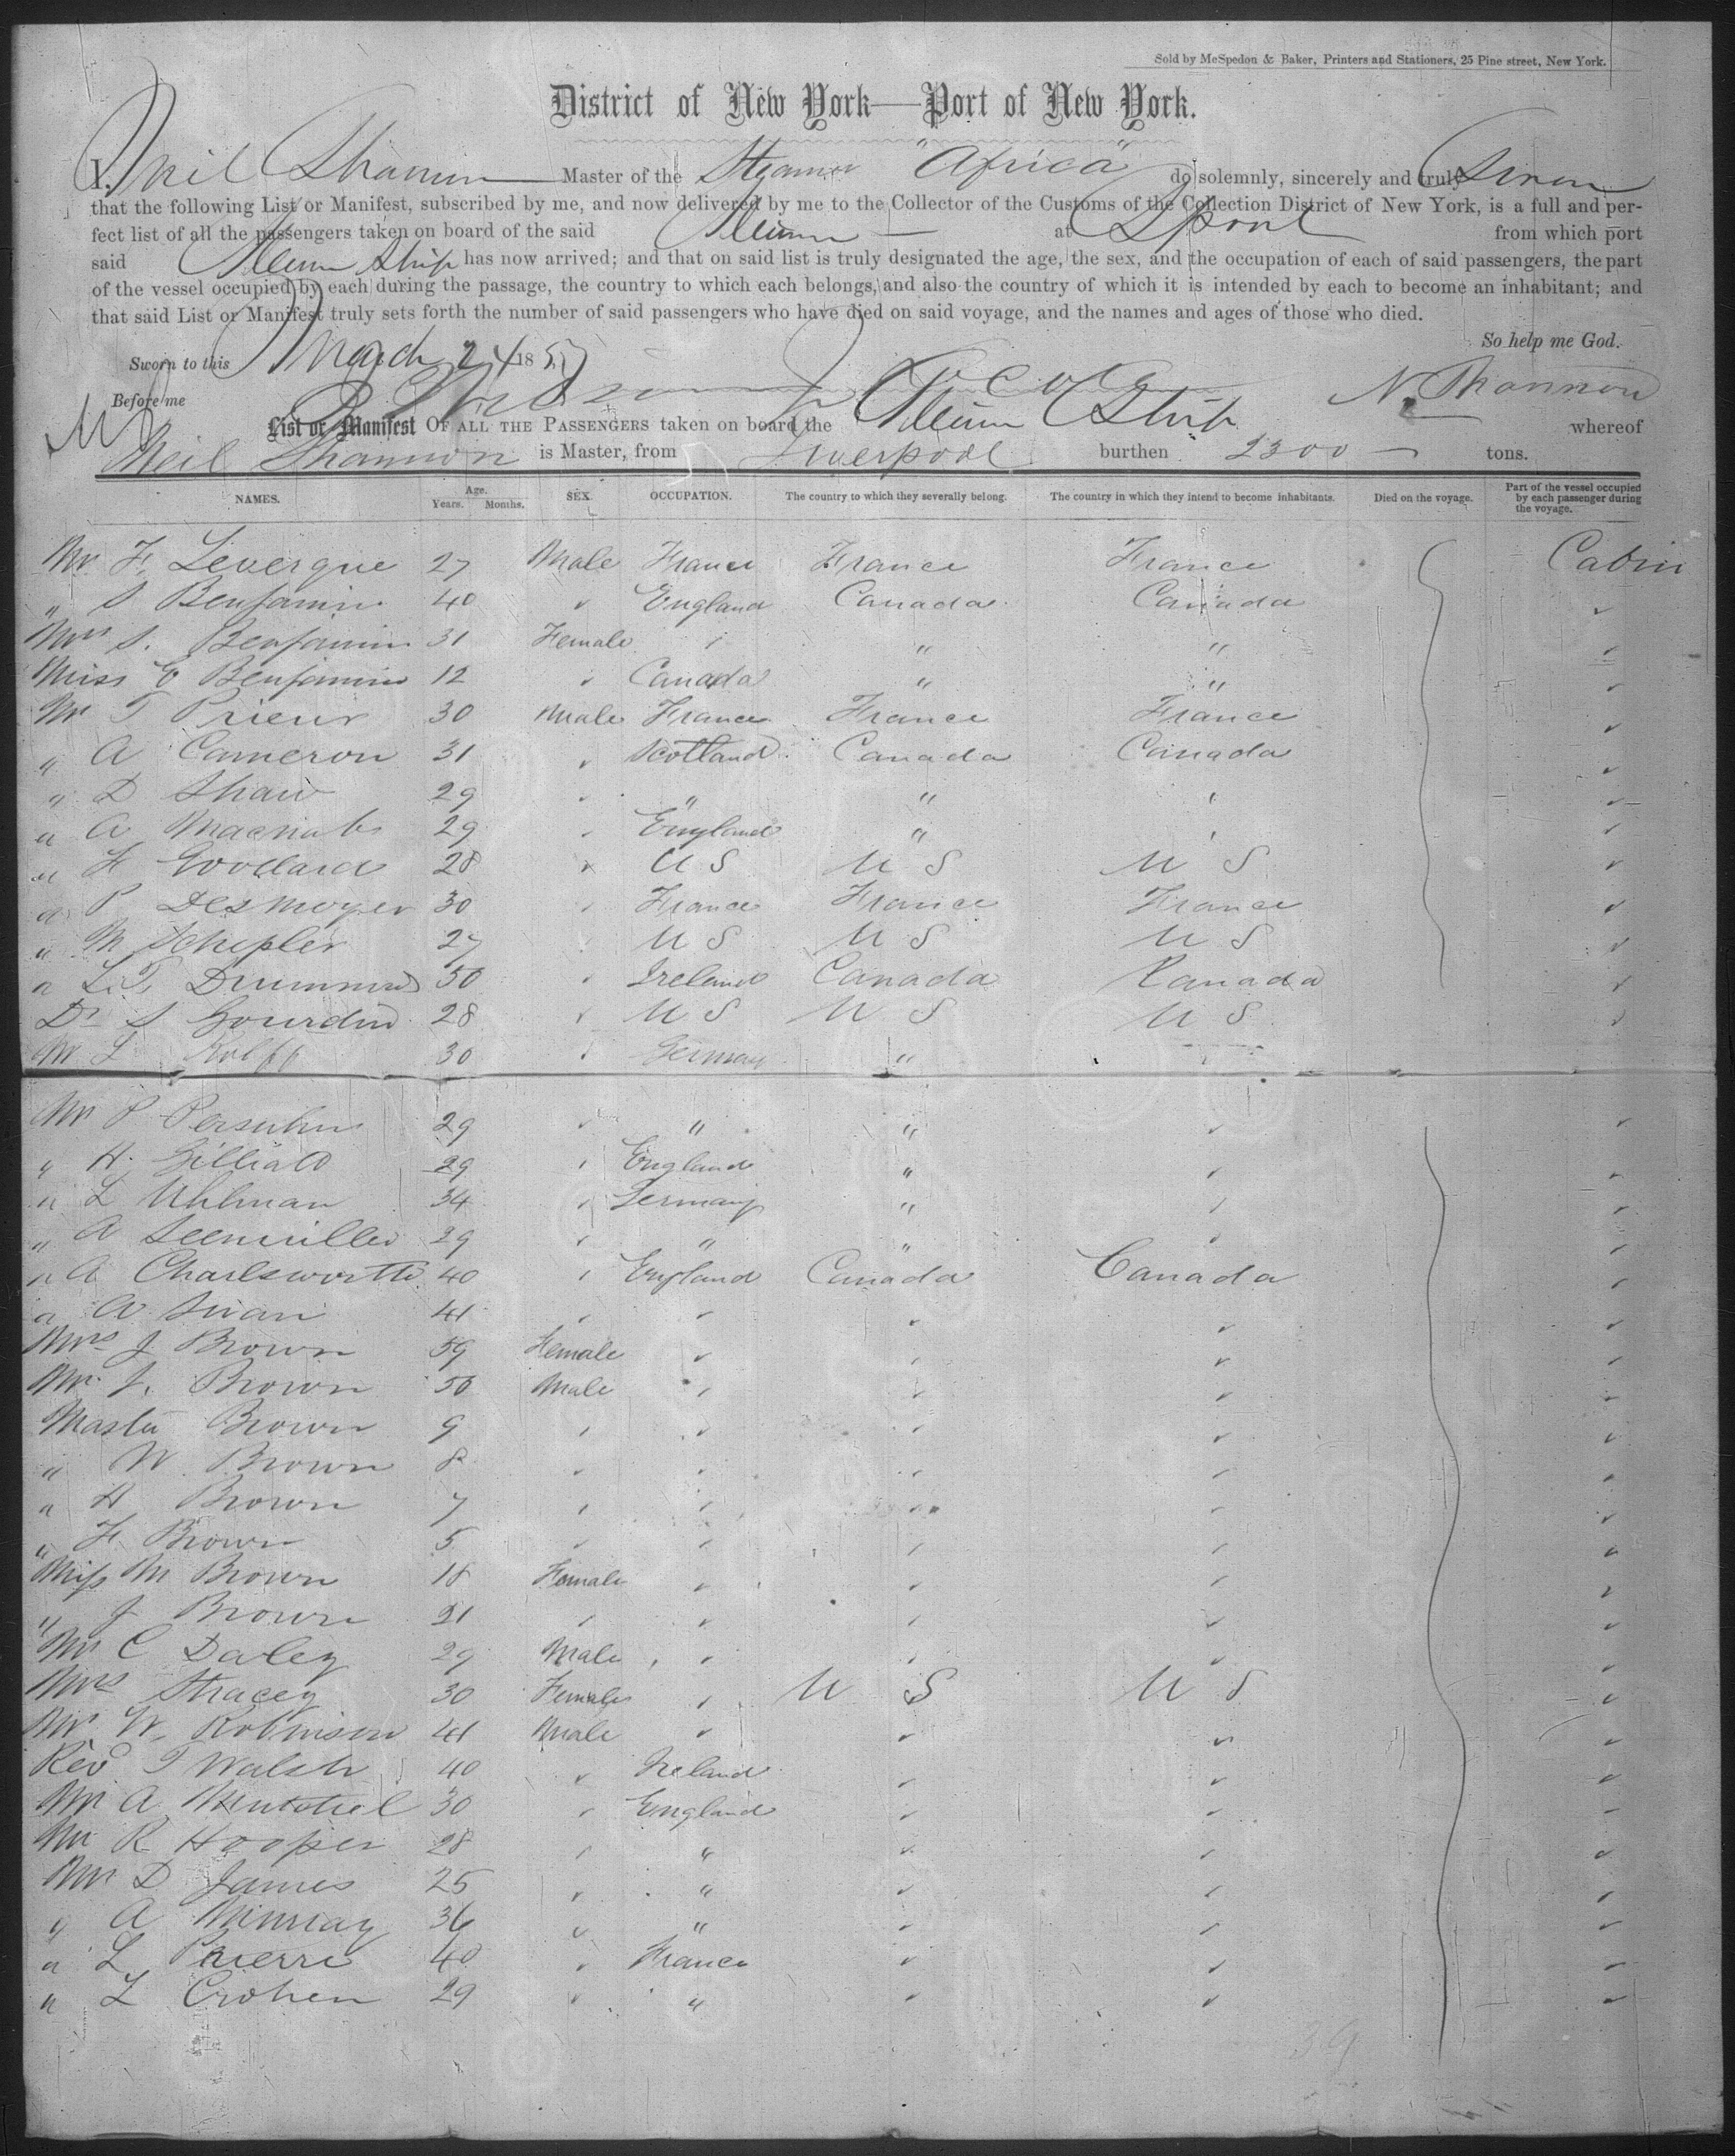 Sold by McSpedon & Baker, Printers and Stationers, 25 Pine street, New York.
District of New York—Port of New York.
I, Neil Shannon Master of the Steamer "Africa" do solemnly, sincerely and truly Swear
that the following List or Manifest, subscribed by me, and now delivered by me to the Collector of the Customs of the Collection District of New York, is a full and per-
fect list of all the passengers taken on board of the said Steamer at Lpool from which port
said Steam Ship has now arrived; and that on said list is truly designated the age, the sex, and the occupation of each of said passengers, the part
of the vessel occupied by each during the passage, the country to which each belongs, and also the country of which it is intended by each to become an inhabitant; and
that said List or Manifest truly sets forth the number of said passengers who have died on said voyage, and the names and ages of those who died.
So help me God.
Sworn to this March 24 1857
Before me N. Shannon
List or Manifest OF ALL THE PASSENGERS taken on board the Steam Ship whereof
Neil Shannon is Master, from Liverpool burthen 2300 tons.
NAMES. Age. Years. Months. SEX. OCCUPATION. The country to which they severally belong. The country in which they intend to become inhabitants. Died on the voyage. Part of the vessel occupied by each passenger during the voyage.
Mr F. Levergue 27 Male France France France Cabin
" S Benjamin 40 ✓ England Canada Canada ✓
Mrs S. Benjamin 31 Female " " " ✓
Miss E Benjamin 12 ✓ Canada " " ✓
Mr T Prieur 30 Male France France France ✓
" A Cameron 31 ✓ Scotland Canada Canada ✓
" D Shaw 29 ✓ " " " ✓
" A Macnab 29 ✓ England " " ✓
" F Goodard 28 ✓ U S U S U S ✓
" P Desmoyer 30 ✓ France France France ✓
" M Schepler 27 ✓ U S U S U S ✓
" L. T. Drummond 50 ✓ Ireland Canada Canada ✓
Dr S Gourdin 28 ✓ U S U S U S ✓
Mr L Rolff 30 ✓ Germany "
Mr P Persuhn 29 ✓ " " ✓ ✓
" H. Gilliat 29 ✓ England " ✓ ✓
" L Uhlman 34 ✓ Germany " ✓ ✓
" A 29 ✓ " " ✓ ✓
" A Charlsworth 40 ✓ England Canada Canada ✓
" A Swan 41 ✓ ✓ ✓ ✓ ✓
Mrs J Brown 59 Female ✓ ✓ ✓ ✓
Mr J. Brown 50 Male ✓ ✓ ✓ ✓
Master Brown 9 ✓ ✓ ✓ ✓ ✓
" W Brown 8 ✓ ✓ ✓ ✓ ✓
" H Brown 7 ✓ ✓ ✓ ✓ ✓
" F Brown 5 ✓ ✓ ✓ ✓ ✓
Miss M Brown 18 Female ✓ ✓ ✓ ✓
" J Brown 21 ✓ ✓ ✓ ✓ ✓
Mr C Daley 29 Male ✓ ✓ ✓ ✓
Mrs Stracey 30 Female ✓ U S U S ✓
Mr W. Robinson 41 Male ✓ ✓ ✓ ✓
Rev T Walsh 40 ✓ Ireland ✓ ✓ ✓
Mr A 30 ✓ England ✓ ✓ ✓
Mr R Hooper 28 ✓ " ✓ ✓ ✓
Mr D James 25 ✓ " ✓ ✓ ✓
" A Murray 36 ✓ " ✓ ✓ ✓
" L Pierre 40 ✓ France ✓ ✓ ✓
" L Crohen 29 ✓ " ✓ ✓ ✓
39